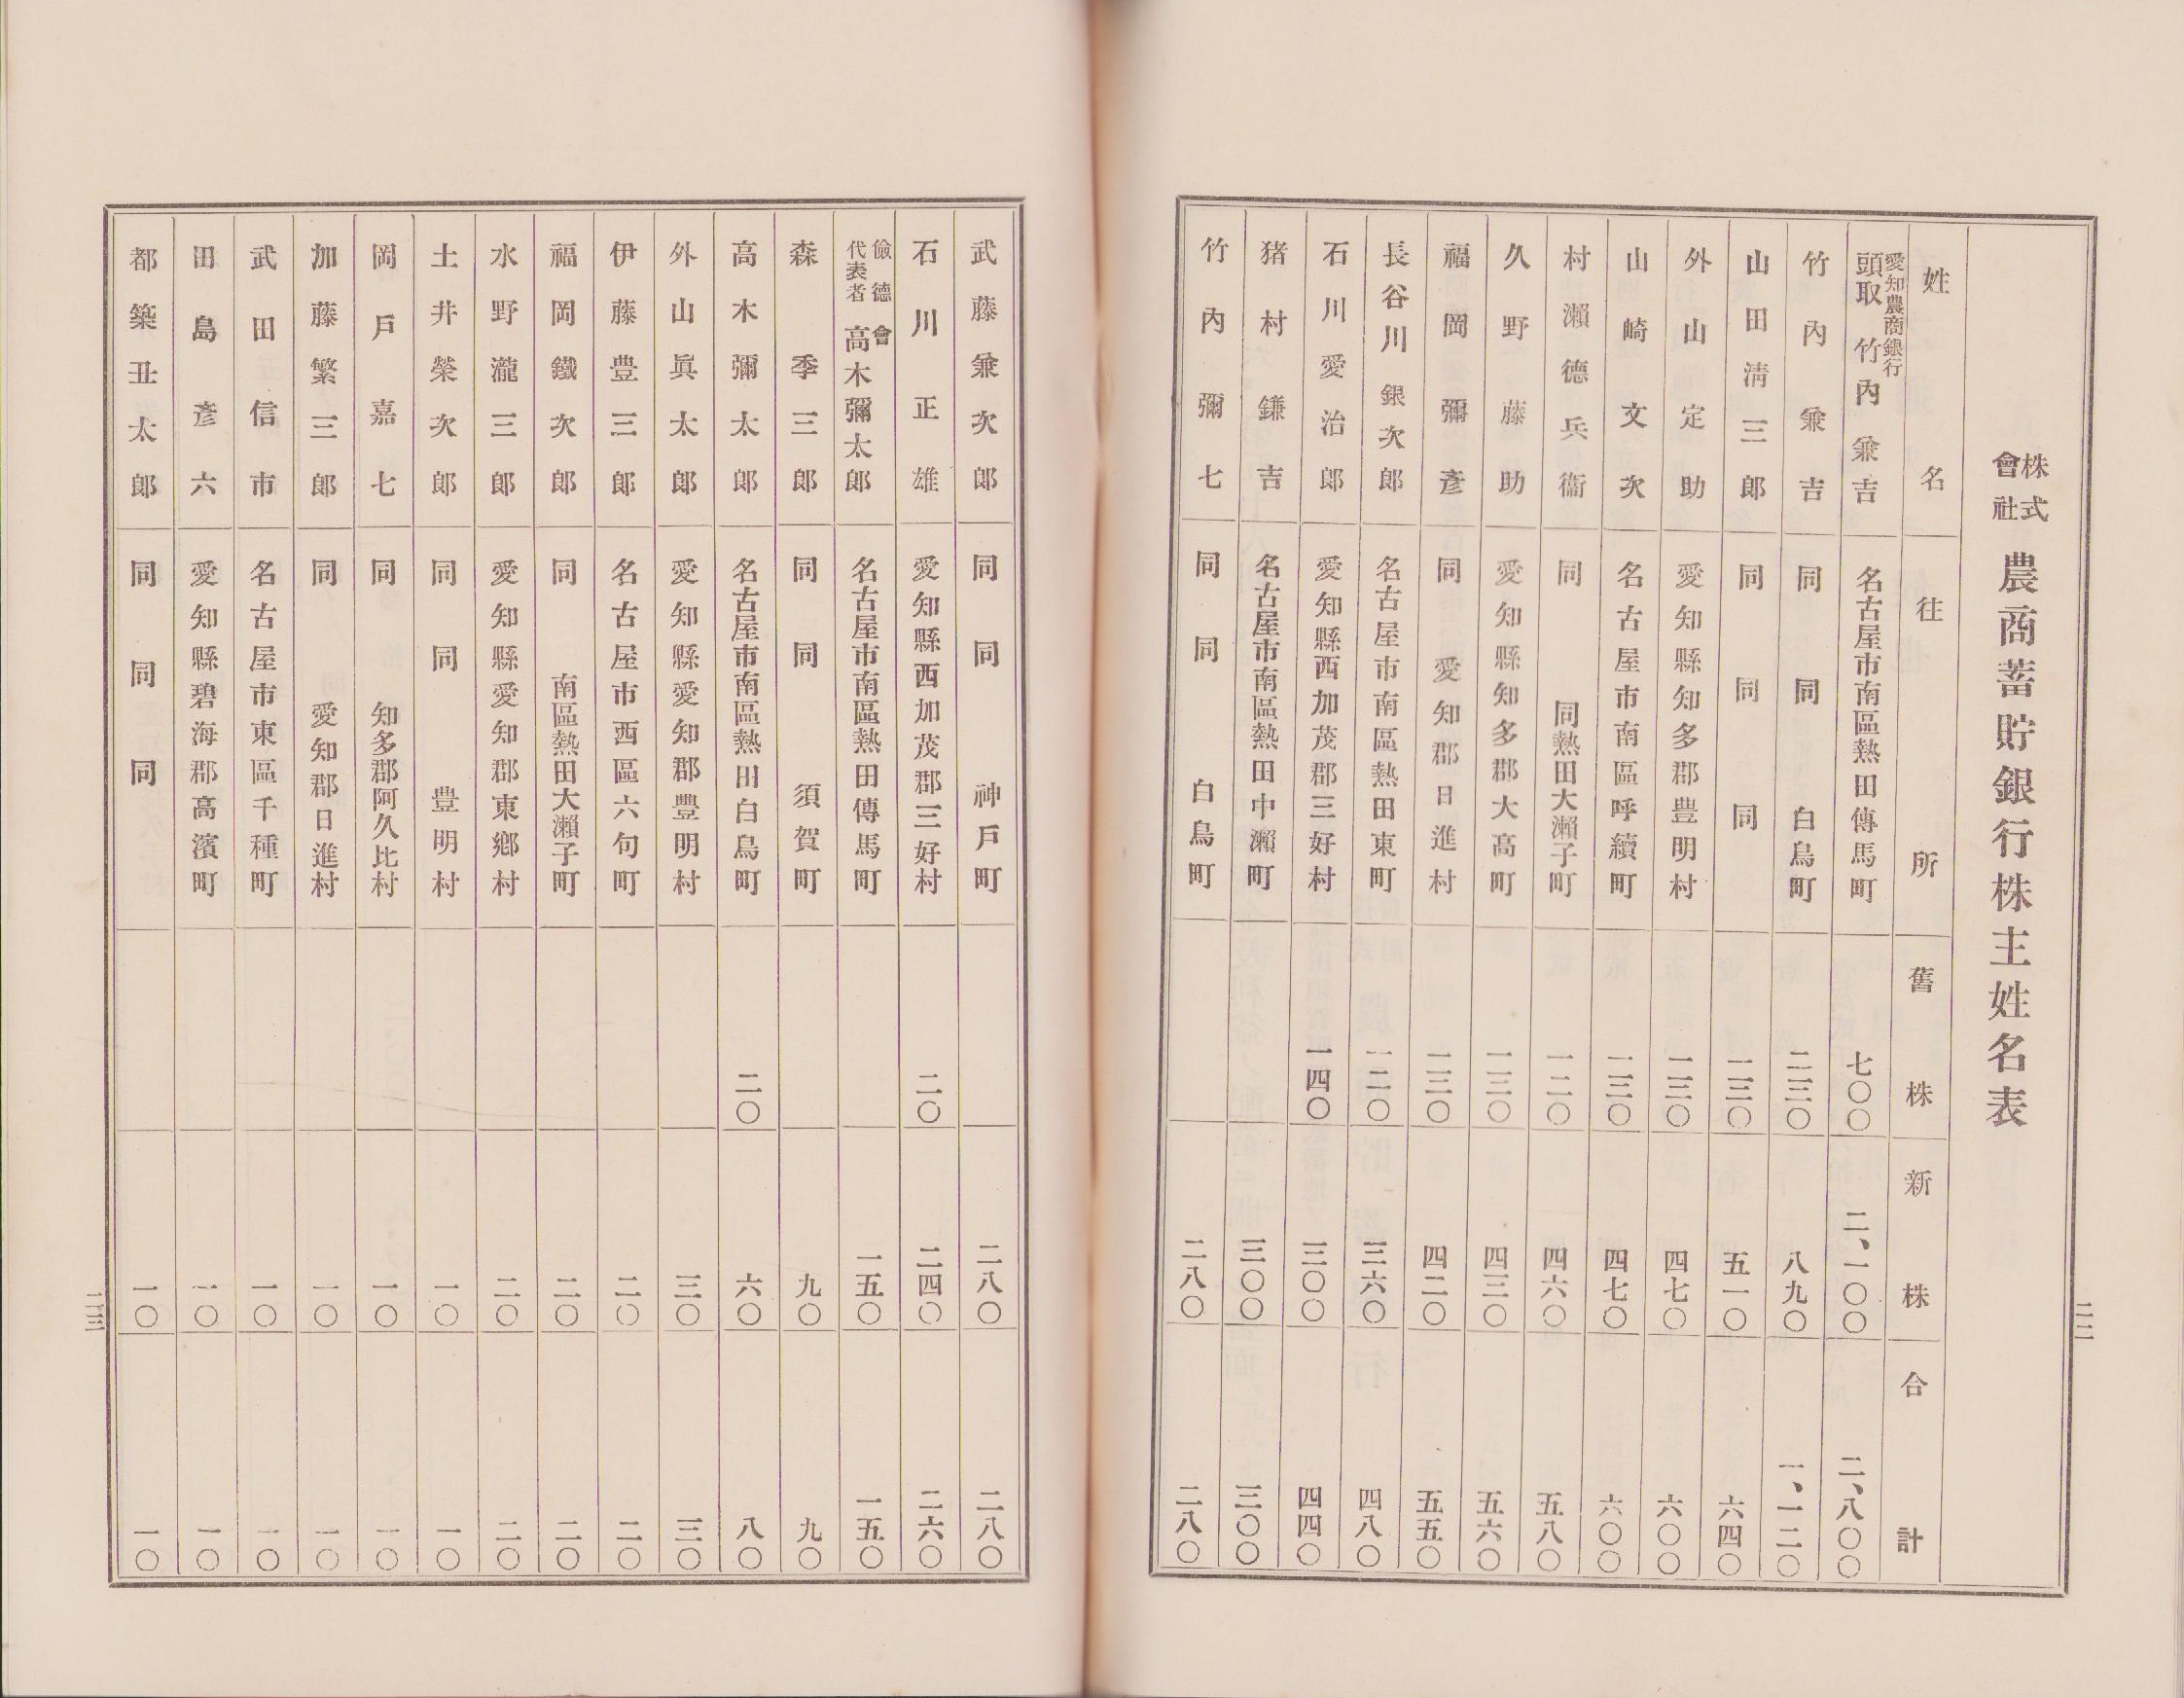 株式會社 農商蓄貯銀行株主姓名表
姓名 住所 舊株 新株 合計
愛知農商銀行頭取 竹內兼吉 名古屋市南區熱田傳馬町 七〇〇 二、一〇〇 二、八〇〇
竹內兼吉 同 同 白鳥町 二三〇 八九〇 一、一二〇
山田淸三郎 同 同 同 一三〇 五一〇 六四〇
外山定助 愛知縣知多郡豊明村 一三〇 四七〇 六〇〇
山崎文次 名古屋市南區呼續町 一三〇 四七〇 六〇〇
村瀨德兵衞 同 同熱田大瀨子町 一二〇 四六〇 五八〇
久野藤助 愛知縣知多郡大高町 一三〇 四三〇 五六〇
福岡彌彥 同 愛知郡日進村 一三〇 四二〇 五五〇
長谷川銀次郎 名古屋市南區熱田東町 一二〇 三六〇 四八〇
石川愛治郎 愛知縣西加茂郡三好村 一四〇 三〇〇 四四〇
猪村鎌吉 名古屋市南區熱田中瀨町 三〇〇 三〇〇
竹內彌七 同 同 白鳥町 二八〇 二八〇
二二
武藤兼次郎 同 同 神戶町 二八〇 二八〇
石川正雄 愛知縣西加茂郡三好村 二〇 二四〇 二六〇
儉德會代表者 高木彌太郎 名古屋市南區熱田傳馬町 一五〇 一五〇
森季三郎 同 同 須賀町 九〇 九〇
高木彌太郎 名古屋市南區熱田白鳥町 二〇 六〇 八〇
外山眞太郎 愛知縣愛知郡豊明村 三〇 三〇
伊藤豊三郎 名古屋市西區六句町 二〇 二〇
福岡鐵次郎 同 南區熱田大瀨子町 二〇 二〇
水野瀧三郎 愛知縣愛知郡東鄕村 二〇 二〇
土井榮次郎 同 同 豊明村 一〇 一〇
岡戶嘉七 同 知多郡阿久比村 一〇 一〇
加藤繁三郎 同 愛知郡日進村 一〇 一〇
武田信市 名古屋市東區千種町 一〇 一〇
田島彥六 愛知縣碧海郡高濱町 一〇 一〇
都築丑太郎 同 同 同 一〇 一〇
二三